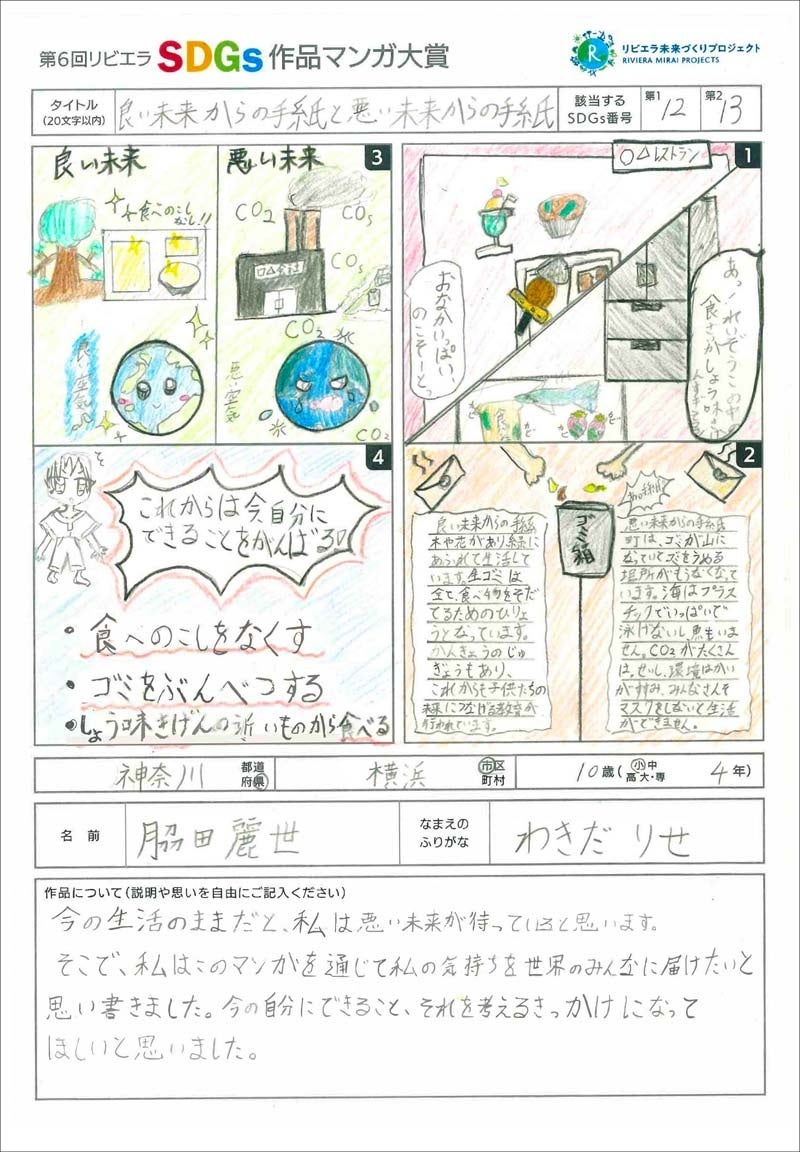 第6回リビエラ SDGs 作品マンガ大賞
リビエラ未来づくりプロジェクト
RIVIERA MIRAI PROJECTS
タイトル
(20文字以内)
良い未来からの手紙と悪い未来からの手紙
該当する
SDGs番号
第1
12
第2
13
1
○△レストラン
おなかいっぱい、
のこそーっと
あっ!れいぞうこの中
2
ゴミ箱
良い未来からの手紙
木や花があり緑に
あふれて生活して
います。生ゴミは
全て、食べ物をそだ
てるためのひりょ
うとなっています。
かんきょうのじゅ
ぎょうもあり、
これからも子供たちの
未来につなげる教育が
行われています。
悪い未来からの手紙
町は、ゴミが山に
なっていてゴミをうめる
場所がもうなくなって
います。海はプラス
チックでいっぱいで
泳げないし魚もいま
せん。CO2がたくさん
マスクをしないと生活
ができません。
3
良い未来
食べのこし
なし!!
良い空気
悪い未来
CO2
□△会社
CO2
悪い空気
CO2
4
これからは今自分に
できることをがんばるぞ
・食べのこしをなくす
・ゴミをぶんべつする
・しょう味きげんの近いものから食べる
神奈川
都道
府県
横浜
市区
町村
10歳(小中
高大・専
4年)
名前
脇田麗世
なまえの
ふりがな
わきだ りせ
作品について(説明や思いを自由にご記入ください)
今の生活のままだと、私は悪い未来が待っていると思います。
そこで、私はこのマンガを通じて私の気持ちを世界のみんなに届けたいと
思い書きました。今の自分にできること、それを考えるきっかけになって
ほしいと思いました。